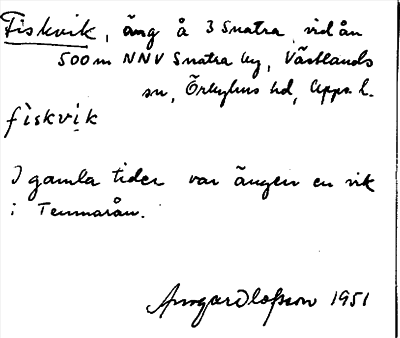 Fiskvik, äng å 3 Snatra, vid ån
500 m NNV Snatra by, Västlands
sn, Örbyhus hd, Upps. l.
fiskvik
I gamla tider var ängen en vik
i Temnarån.
Olofsson 1951